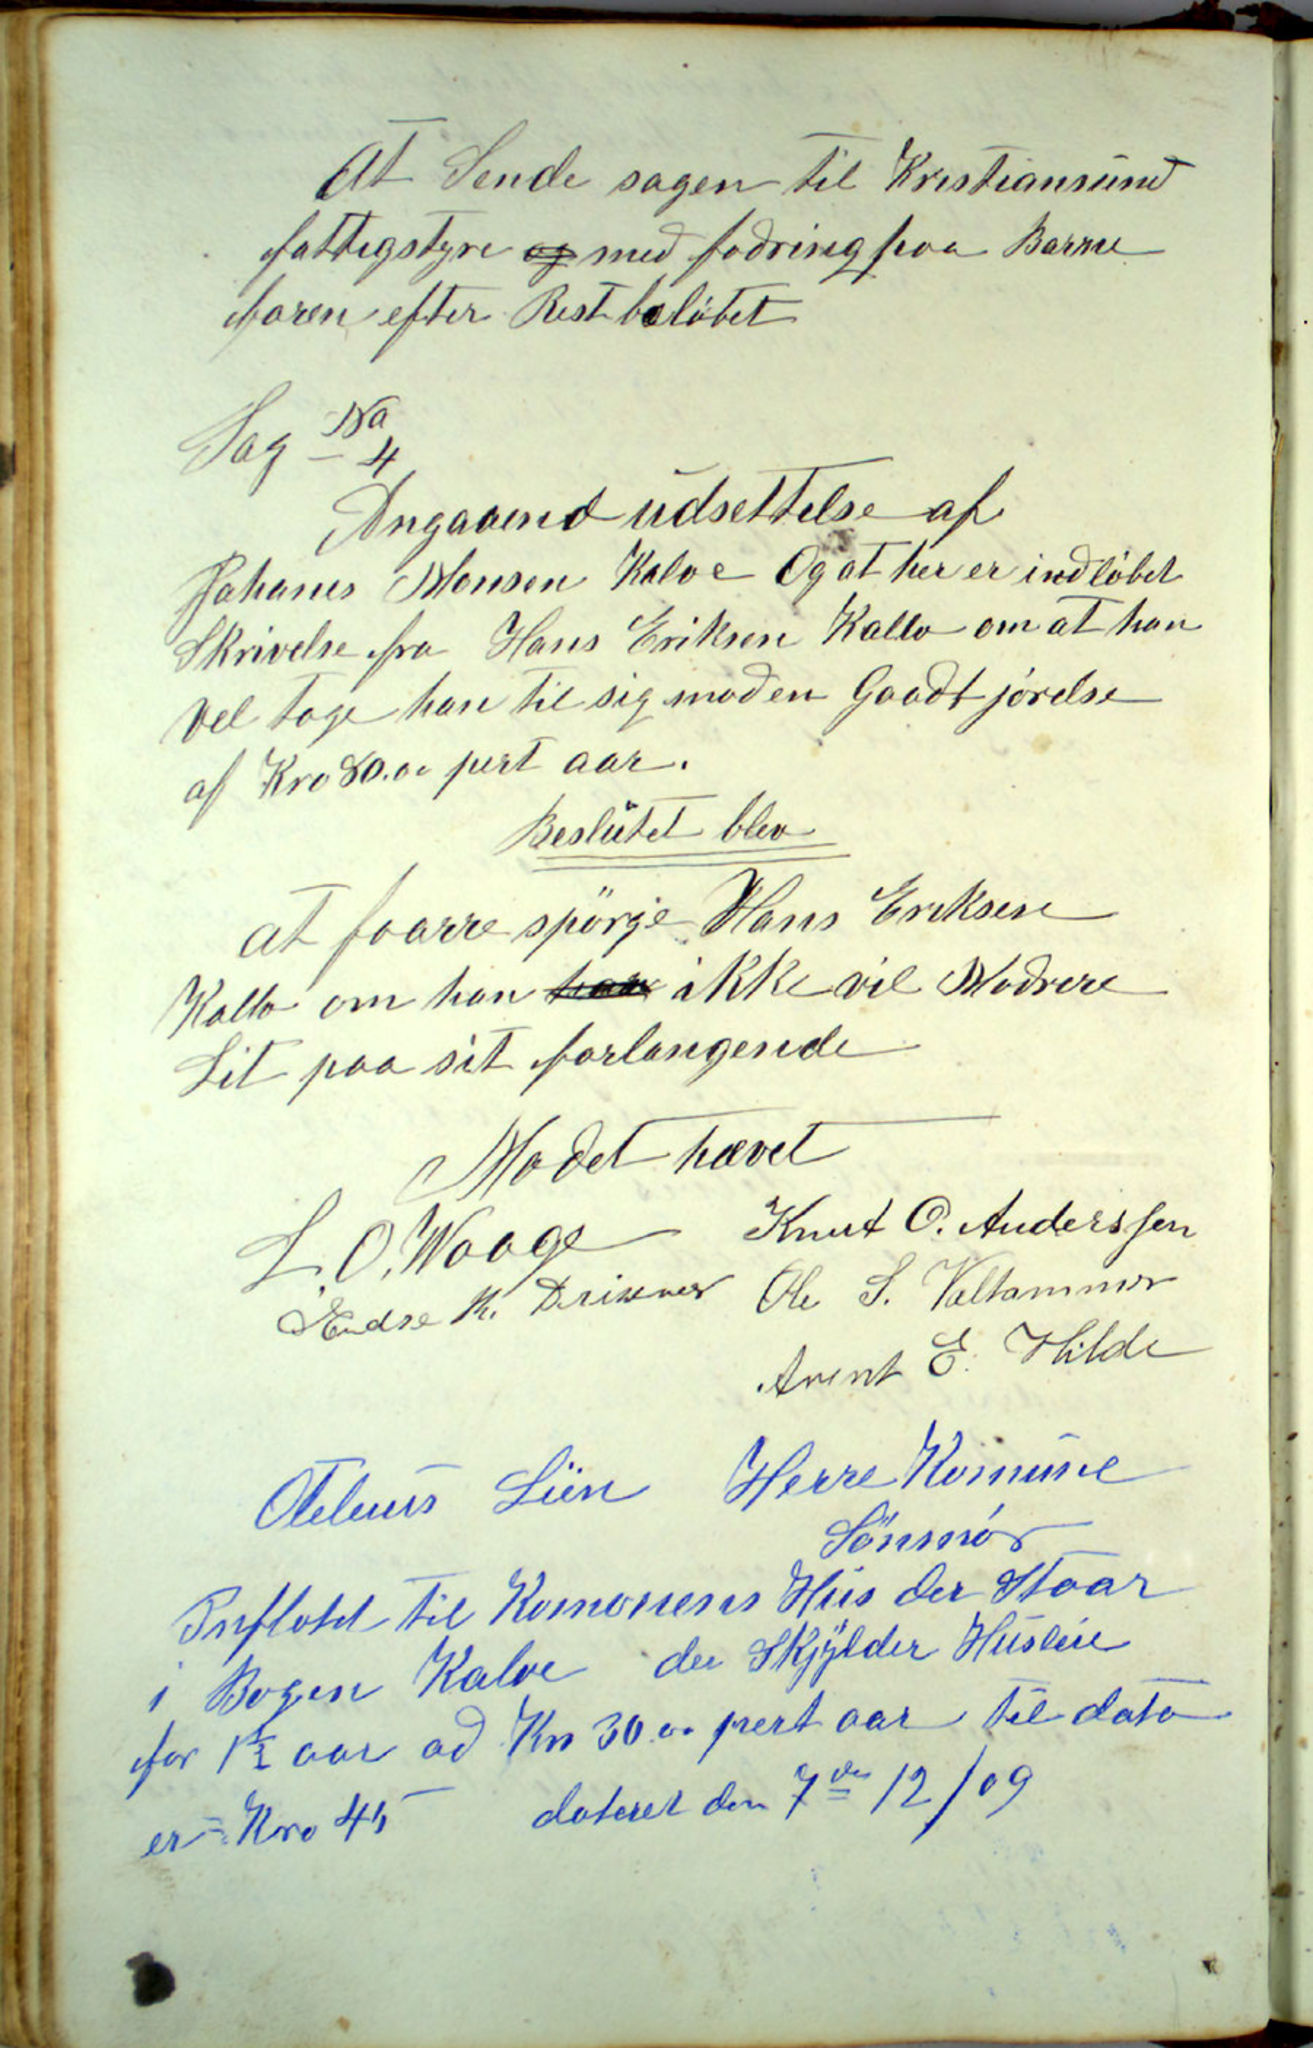 At Sende sagen til Kristiansund
fattigstyre og med fodring paa Barne
faren efter Restbeløbet
Sag No 4
Angaaend udsettelse af
Johanes Monsen Kalve Og at her er indløbet
Skrivelse fra Hans Eriksen Kallo om at han
vel tage han til sig mod en Gaadtjørelse
af Kro 80.00 pert aar.
Beslutet blev
at faarre spörje Hans Eriksen
Kallo om han han ikke vil Modrere
Lit paa sit forlangende
Mødet hævet
L. O. Waage Knut O. Anderssen
Endse M. Ole S. Valhammer
Arent E. Hilde
Oteleus Lien Herre Komune
Sönmör
Inflotd til Komonens Hus der Staar
i Bogen Kalve der Skjylder Husleie
for 1½ aar ad Kro 30.00 pert aar til dato
er = Kro 45 dateret den 7de 12/09